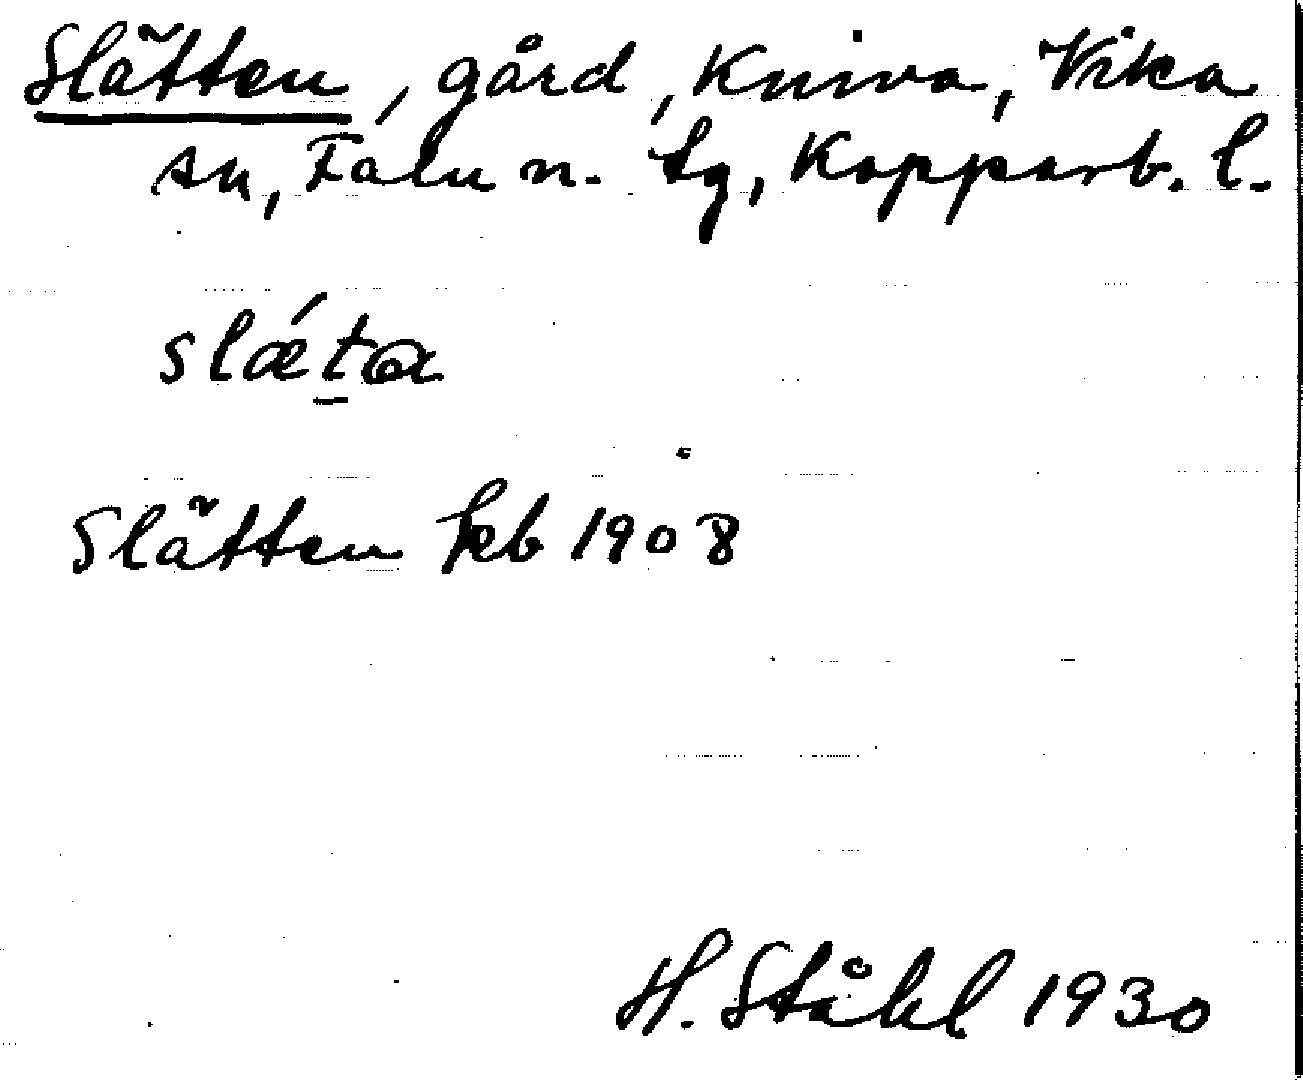 Slätten, gård, Kniva, Vika
sn, Falu n. tg, Kopparb. l.
slǽta
Slätten feb 1908
H. Ståhl 1930